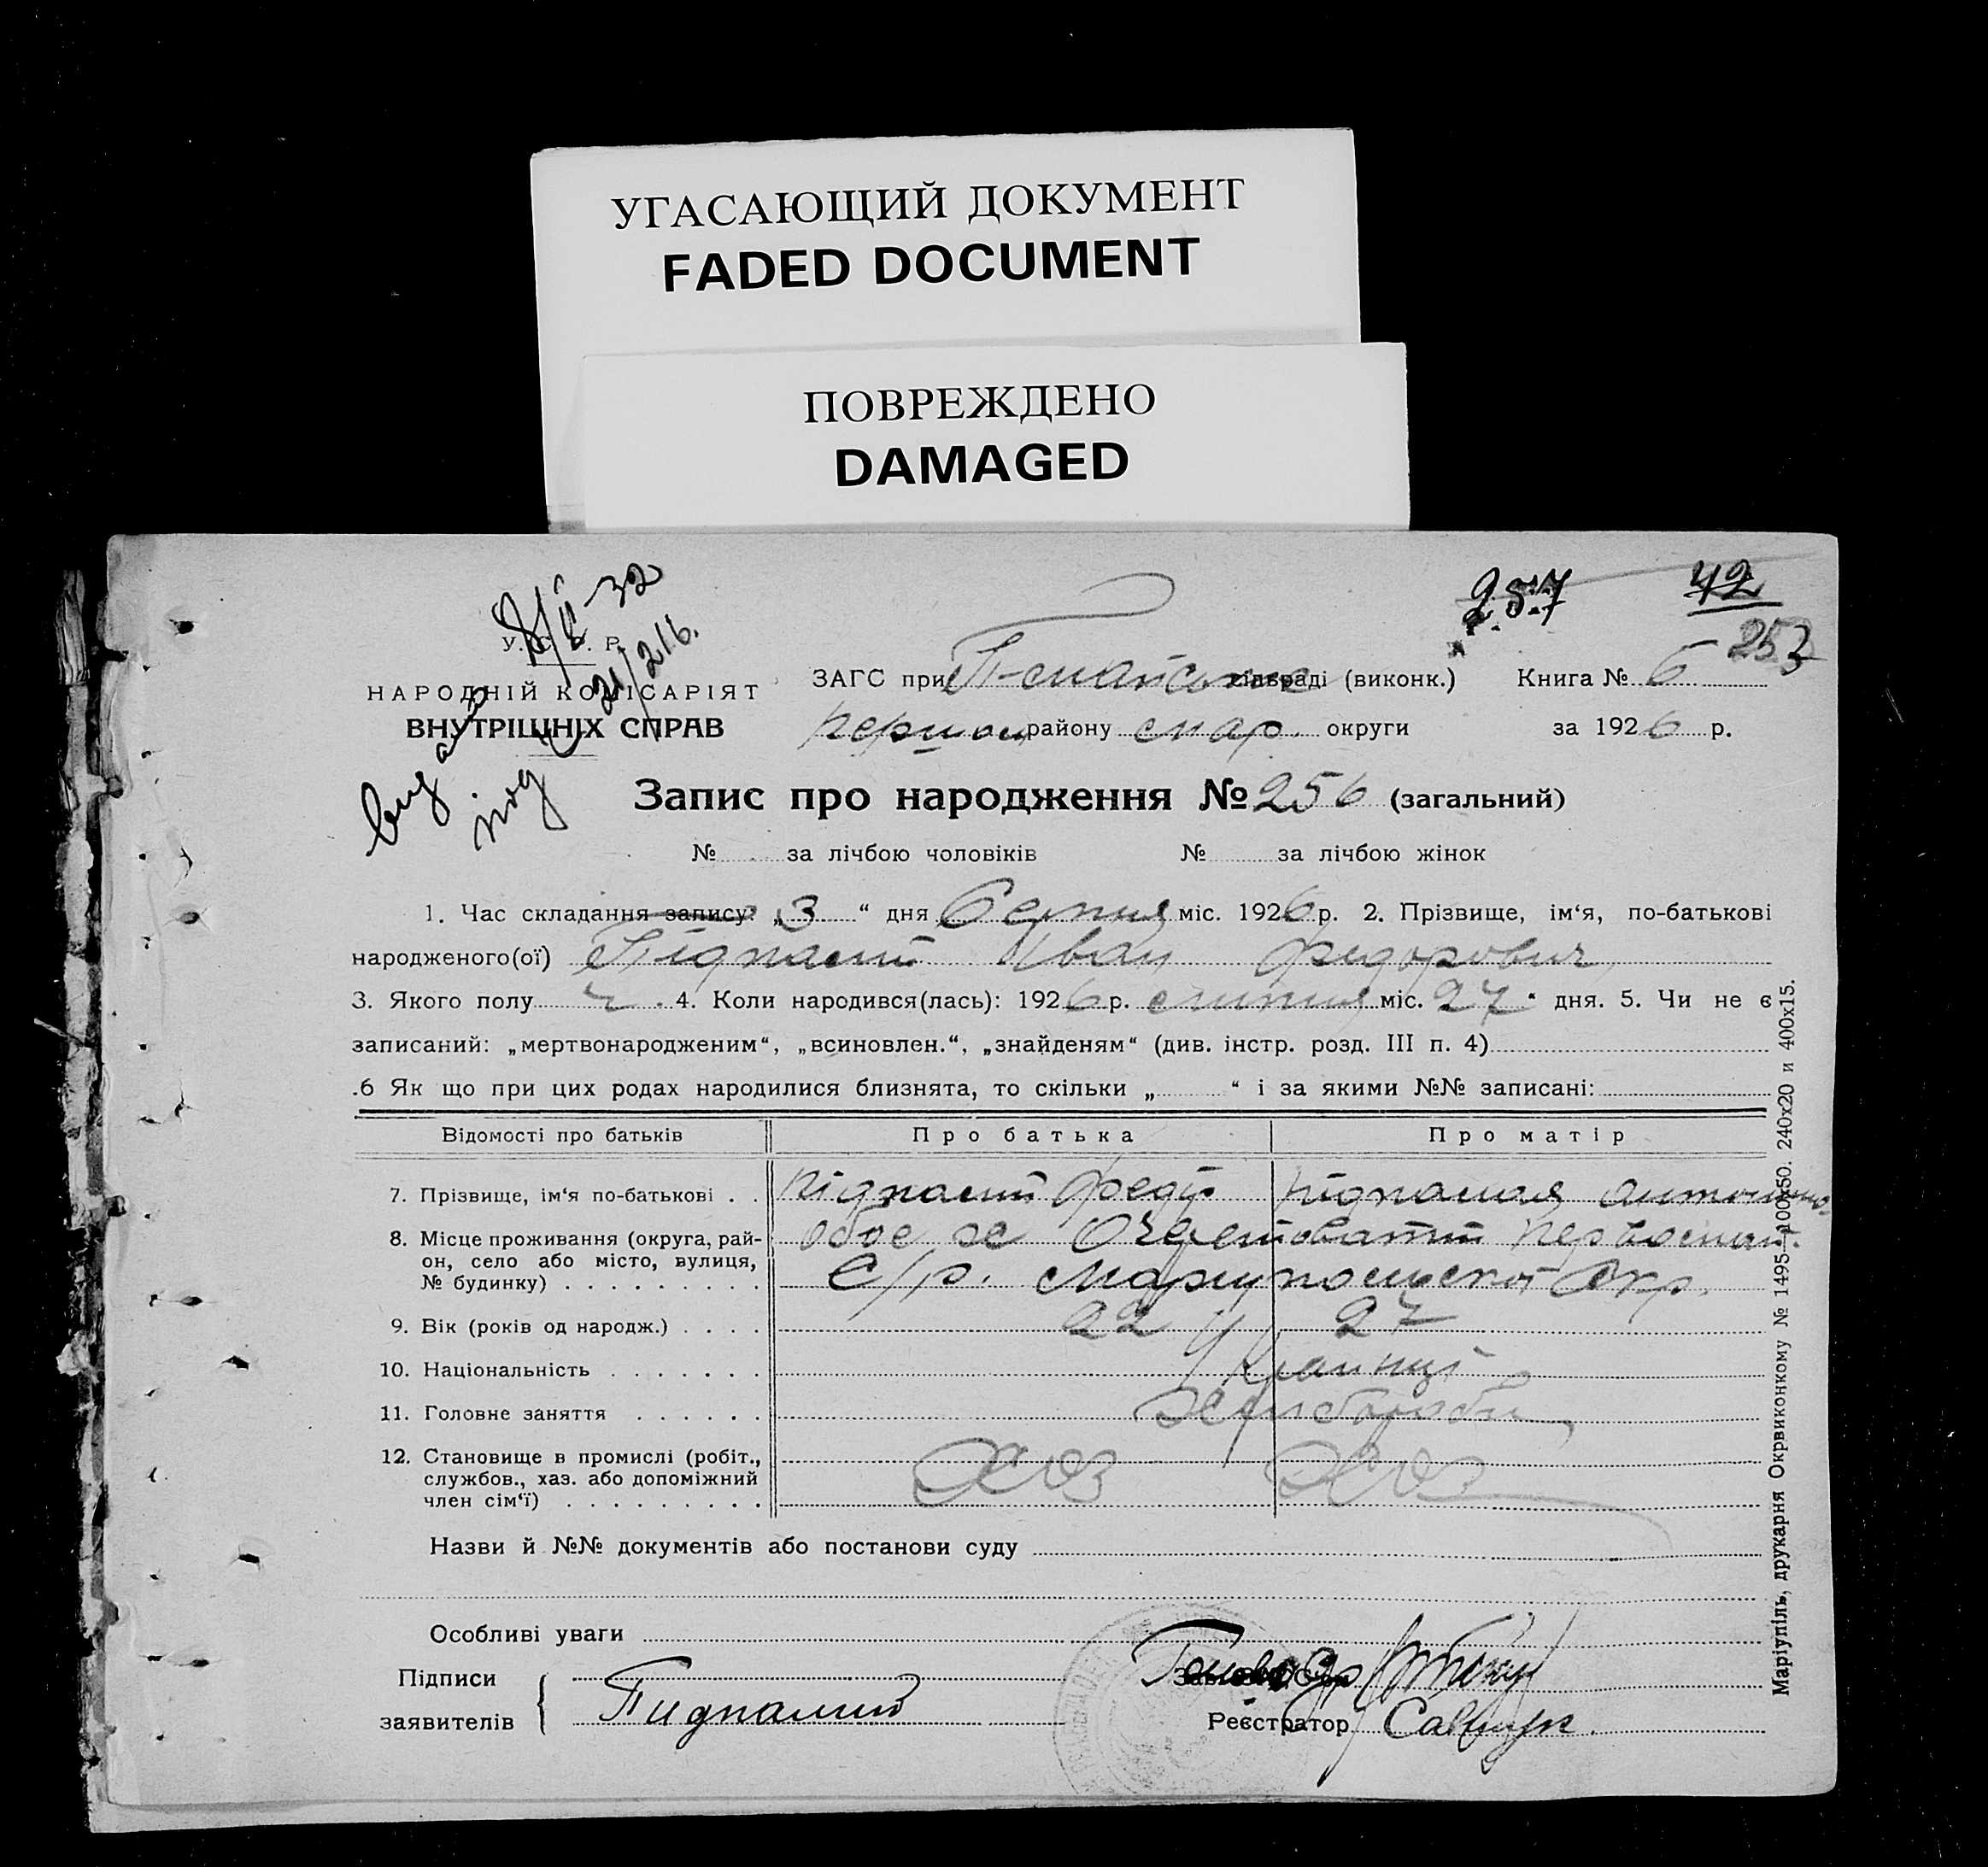 УГАСАЮЩИЙ ДОКУМЕНТ
FADED DOCUMENT
ПОВРЕЖДЕНО
DAMAGED
257 42
253
8/II-32
У. С. Р. Р.
НАРОДНІЙ КОМІСАРІЯТ
ВНУТРІШНІХ СПРАВ
ЗАГС при сільраді (виконк.) Книга № 6
першом району мар. округи за 1926 р.
Запис про народження № 256 (загальний)
№ за лічбою чоловіків № за лічбою жінок
1. Час складання запису: „3“ дня Серпня міс. 1926 р. 2. Прізвище, ім‘я, по-батькові
народженого(ої) Підпалий Іван Федорович
3. Якого полу ч. 4. Коли народився(лась): 1926 р. липня міс. 27“ дня. 5. Чи не є
записаний: „мертвонародженим“, „всиновлен.“, „знайденям“ (див. інстр. розд. III п. 4)
.6 Як що при цих родах народилися близнята, то скільки „ “ і за якими №№ записані:
Відомості про батьків Про батька Про матір
7. Прізвище, ім‘я по-батькові . . Підпалий Федір Підпалая
8. Місце проживання (округа, рай-
он, село або місто, вулиця,
№ будинку) . . . . . . . . . обоє с/р. Маріупольської Окр.
9. Вік (років од народж.) . . . . 22 27
10. Національність . . . . . . . Українці
11. Головне заняття . . . . . . Хлібороби
12. Становище в промислі (робіт.,
службов., хаз. або допоміжний
член сім‘ї) . . . . . . . . . Хоз Хоз
Назви й №№ документів або постанови суду
Особливі уваги
Підписи
заявителів Пидпалий
Реєстратор Савчук.
Маріупіль, друкарня Окрвиконкому № 1495—100х50. 240х20 и 400х15.